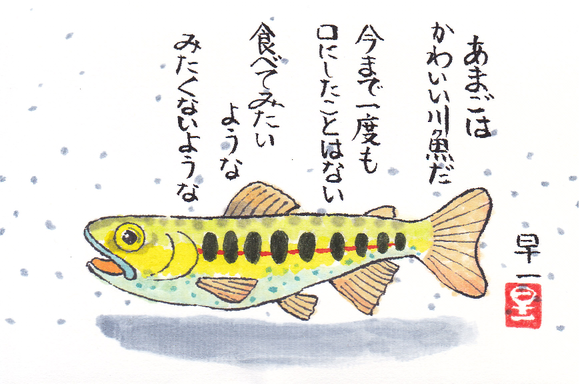 あまごは
かわいい川魚だ
今まで一度も
口にしたことはない
食べてみたい
ような
みたくないような
早一